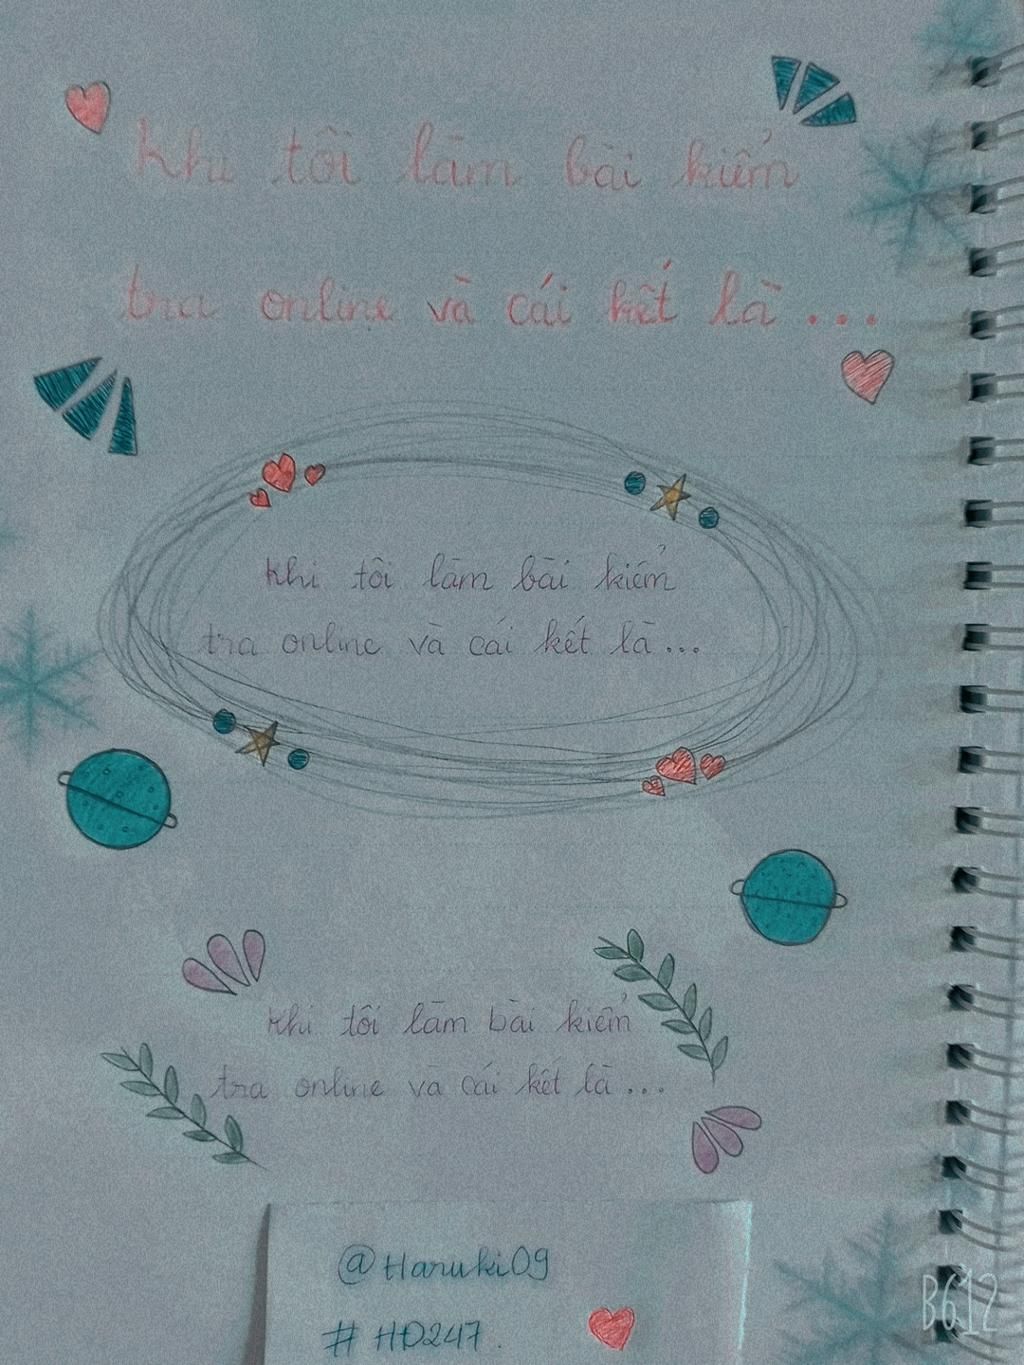 Khi tôi làm bài kiểm
tra online và cái kết là ...
Khi tôi làm bài kiểm
tra online và cái kết là ...
Khi tôi làm bài kiểm
tra online và cái kết là ...
@Haruki09
# HD247.
B612